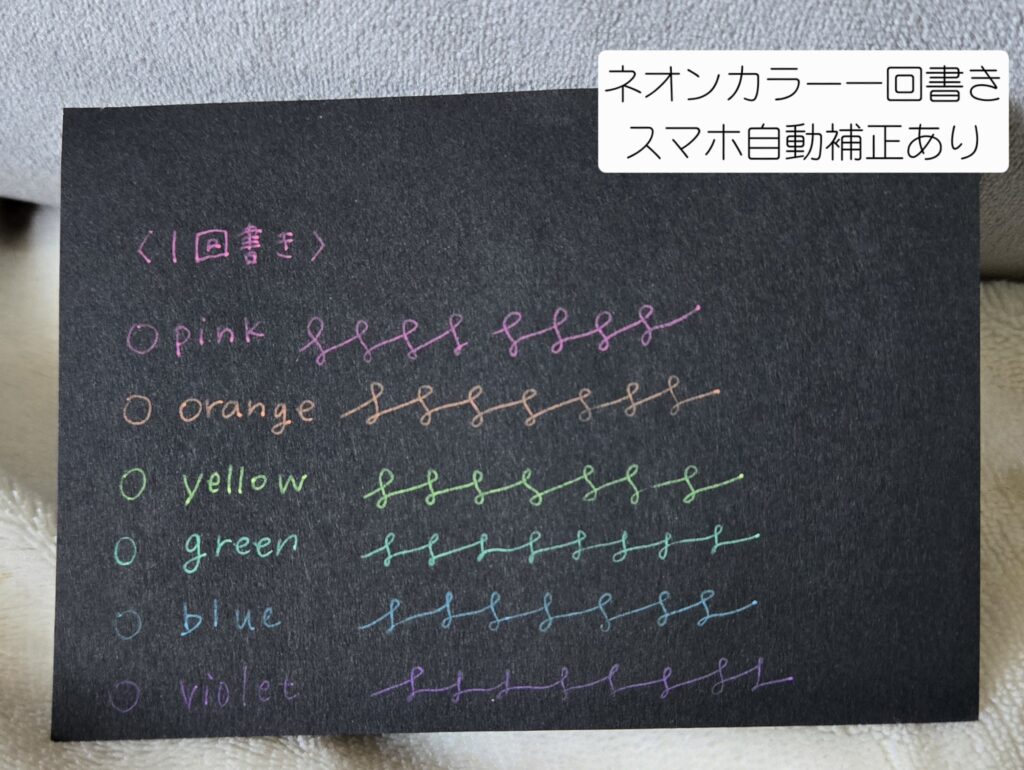 ネオンカラー一回書き
スマホ自動補正あり
〈1回書き〉
○pink
○ orange
○ yellow
○ green
○ blue
○ violet